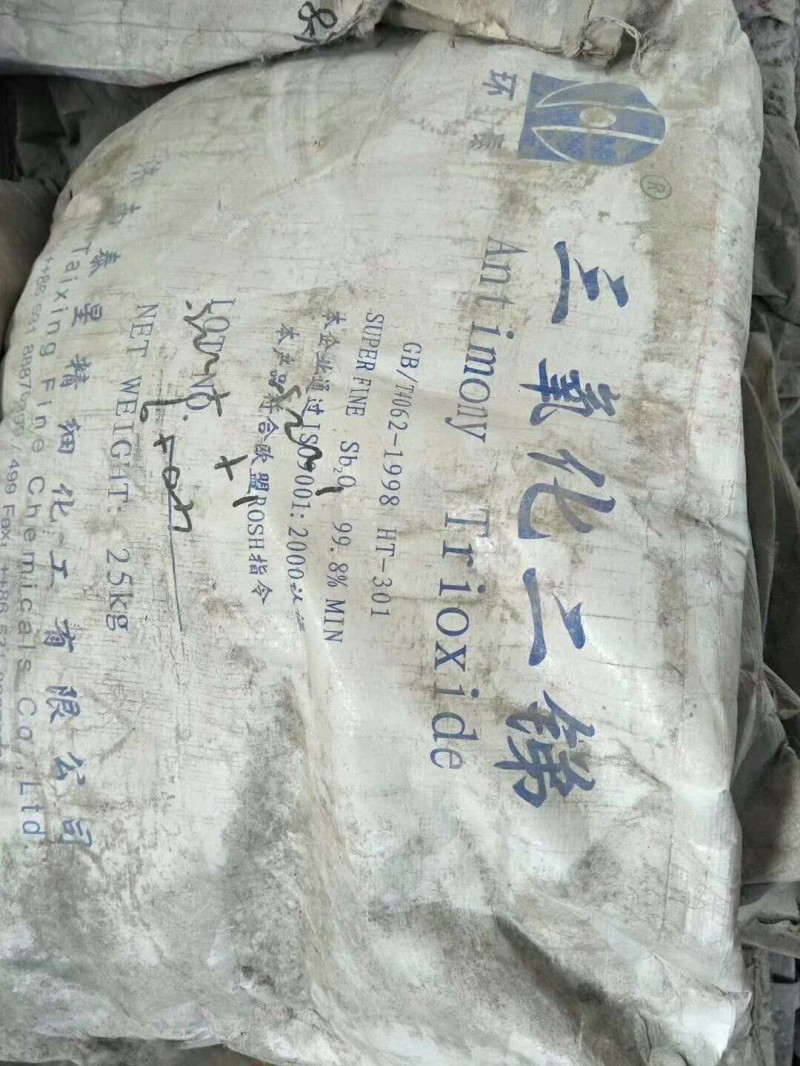 环
®
三氧化二锑
Antimony Trioxide
GB/T4062-1998 HT-301
SUPERFINE Sb₂O₃ 99.8% MIN
本企业通过ISO9001:2000认证
本产品符合欧盟ROSH指令
LOT NO.
NET WEIGHT: 25kg
济南泰星精细化工有限公司
Taixing Fine Chemicals Co., Ltd.